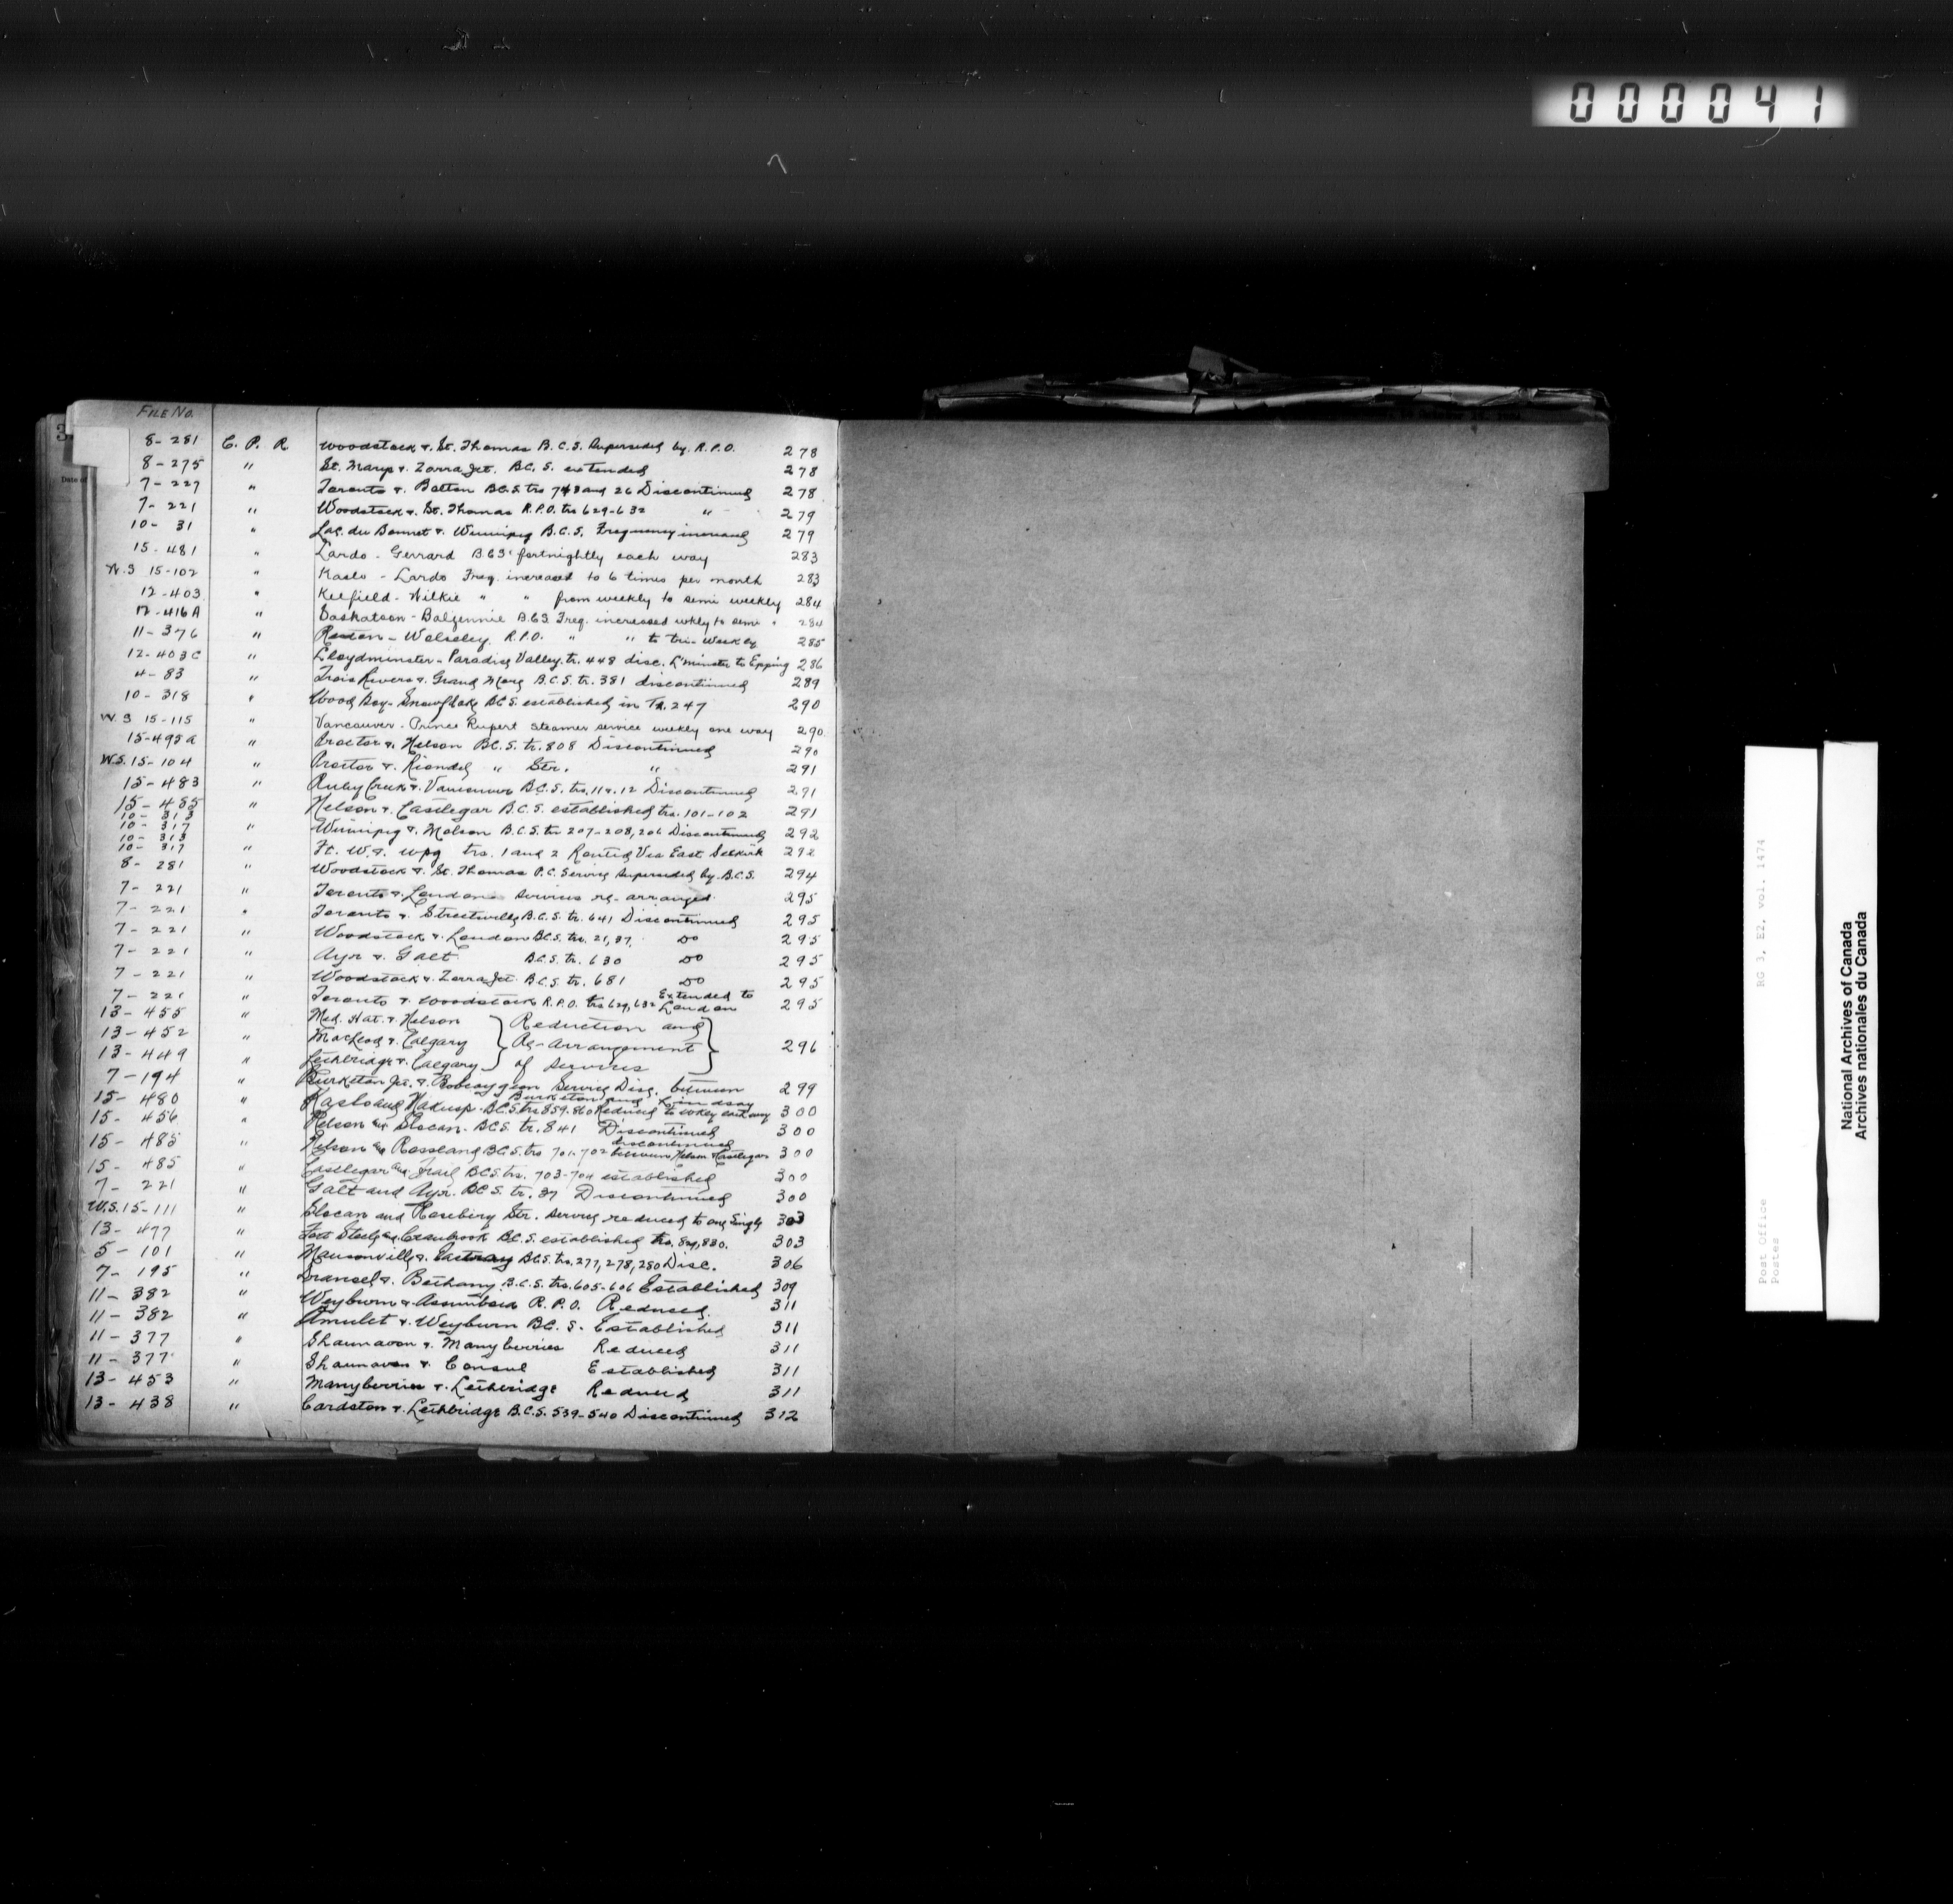 000041
FILE No.
8-281 C. P. R. Woodstock & St. Thomas B.C.S. Superseded by R.P.O. 278
8-275 " St. Marys & Zorra Jct. B.C.S. extended 278
7-227 " Toronto & Bolton B.C.S. trs 743 and 26 Discontinued 278
7-221 " Woodstock & St. Thomas R.P.O. trs 629-632 " 279
10-31 " Lac du Bonnet & Winnipeg B.C.S. Frequency increased 279
15-481 " Lardo - Gerrard B.C.S. fortnightly each way 283
W.S 15-102 " Kaslo - Lardo Freq. increased to 6 times per month 283
12-403 " Kelfield - Wilkie " " from weekly to semi weekly 284
12-416A " Saskatoon - Baljennie B.C.S. Freq. increased wkly to semi " 284
11-376 " Reston - Wolseley R.P.O. " " to tri-weekly 285
12-403C " Lloydminster - Paradise Valley tr. 448 disc. L'minster to Epping 286
4-83 " Trois Rivers & Grand Mere B.C.S. tr. 381 discontinued 289
10-318 " Wood Bay - Snowflake B.C.S. established in Tr. 247 290
W.S 15-115 " Vancouver - Prince Rupert Steamer service weekly one way 290
15-495a " Procter & Nelson B.C.S. tr. 808 Discontinued 290
W.S. 15-104 " Procter & Riondel " Str. " 291
15-483 " Ruby Creek & Vancouver B.C.S. trs. 11 & 12 Discontinued 291
15-485 " Nelson & Castlegar B.C.S. established trs. 101-102 291
10-313
10-317 " Winnipeg & Molson B.C.S. trs 207-208, 206 Discontinued 292
10-313
10-317 " Ft. W. & Wpg trs. 1 and 2 Routed Via East Selkirk 292
8-281 " Woodstock & St. Thomas P.C. Service Superseded by B.C.S. 294
7-221 " Toronto & London Services re-arranged 295
7-221 " Toronto & Streetsville B.C.S. tr. 641 Discontinued 295
7-221 " Woodstock & London B.C.S. trs. 21, 37, Do 295
7-221 " Ayr & Galt B.C.S. tr. 630 Do 295
7-221 " Woodstock & Zorra Jct. B.C.S. tr. 681 Do 295
7-221 " Toronto & Woodstock R.P.O. trs 629, 632 Extended to London 295
13-455 " Med. Hat. & Nelson } Reduction and }
13-452 " MacLeod & Calgary } Re-arrangement } 296
13-449 " Lethbridge & Calgary } of Services }
7-194 " Burketon Jct. & Bobcaygeon Service Disc. between Burketon and Lindsay 299
15-480 " Kaslo and Nakusp B.C.S. trs 859-860 Reduced to wkly each way 300
15-456 " Nelson and Slocan B.C.S. tr. 841 Discontinued 300
15-485 " Nelson and Rossland B.C.S. trs 701-702 discontinued between Nelson & Castlegar 300
15-485 " Castlegar and Trail B.C.S. trs. 703-704 established 300
7-221 " Galt and Ayr. B.C.S. tr. 37 Discontinued 300
W.S. 15-111 " Slocan and Rosebery Str. Service reduced to one Single 303
13-477 " Fort Steele and Cranbrook B.C.S. established trs. 829, 830. 303
5-101 " Mansonville & Eastray B.C.S. trs. 277, 278, 280 Disc. 306
7-195 " Dranoel & Bethany B.C.S. trs. 605-606 Established 309
11-382 " Weyburn & Assiniboia R.P.O. Reduced. 311
11-382 " Amulet & Weyburn B.C.S. Established 311
11-377 " Shaunavon & Manyberries Reduced 311
11-377 " Shaunavon & Consul Established 311
13-453 " Manyberries & Lethbridge Reduced 311
13-438 " Cardston & Lethbridge B.C.S. 539-540 Discontinued 312
Post Office
Postes
RG 3, E2, vol. 1474
National Archives of Canada
Archives nationales du Canada